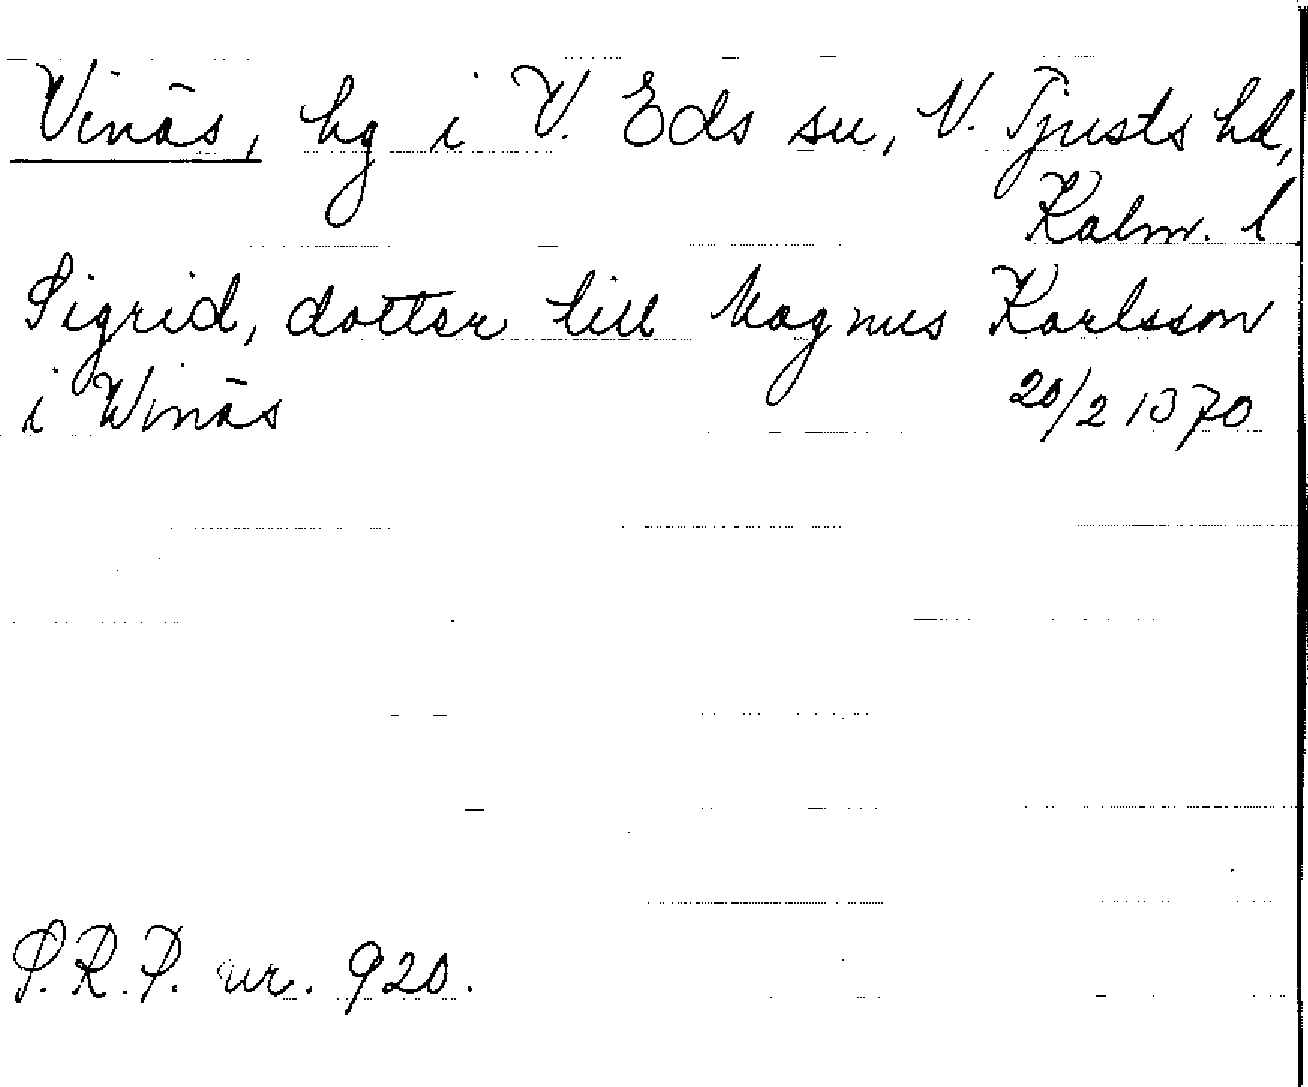 Vinäs, hg i V. Eds sn, N. Tjusts hd,
Kalm. l
Sigrid, dotter till Magnus Karlsson
i Winäs 20/2 1370
S.R.P. nr. 920.